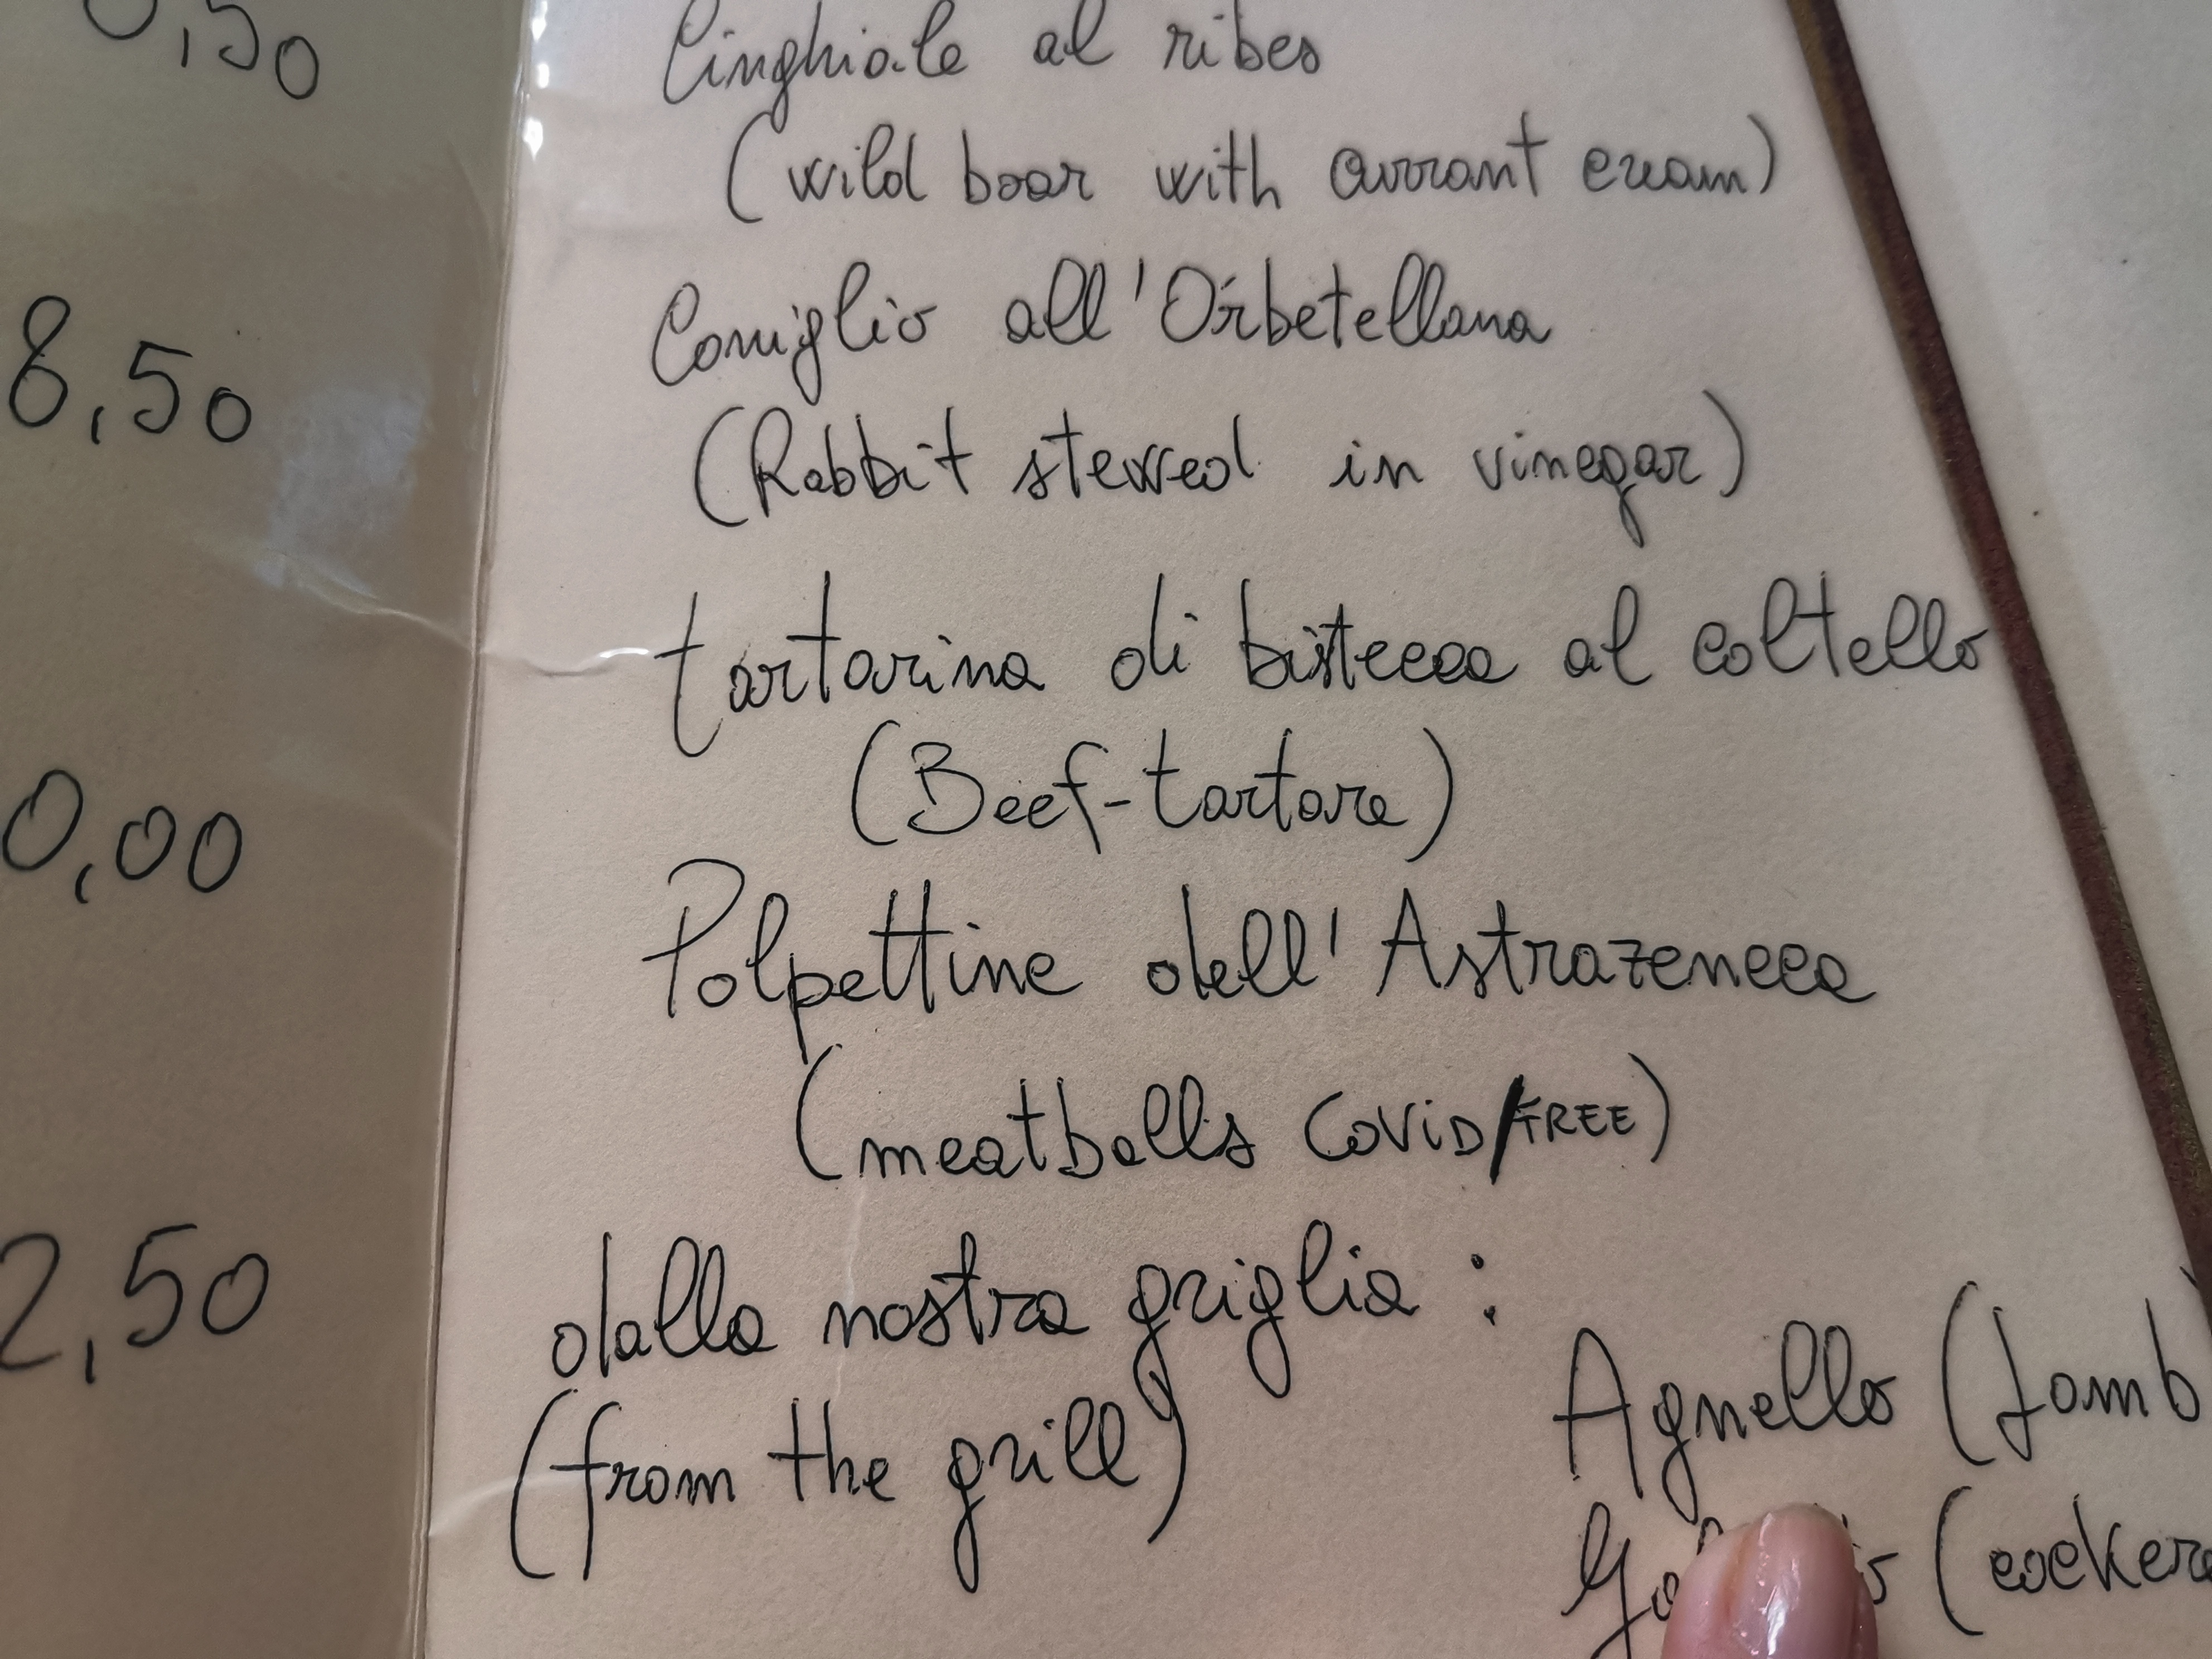 8,50
0,00
2,50
Cinghiale al ribes
(wild boar with currant cream)
Coniglio all'Orbetellana
(Rabbit stewed in vinegar)
tartarina di bistecca al coltello
(Beef-tartare)
Polpettine dell'Astrazeneca
(meatballs CoViD/FREE)
dalla nostra griglia:
(from the grill)
Agnello (Lamb